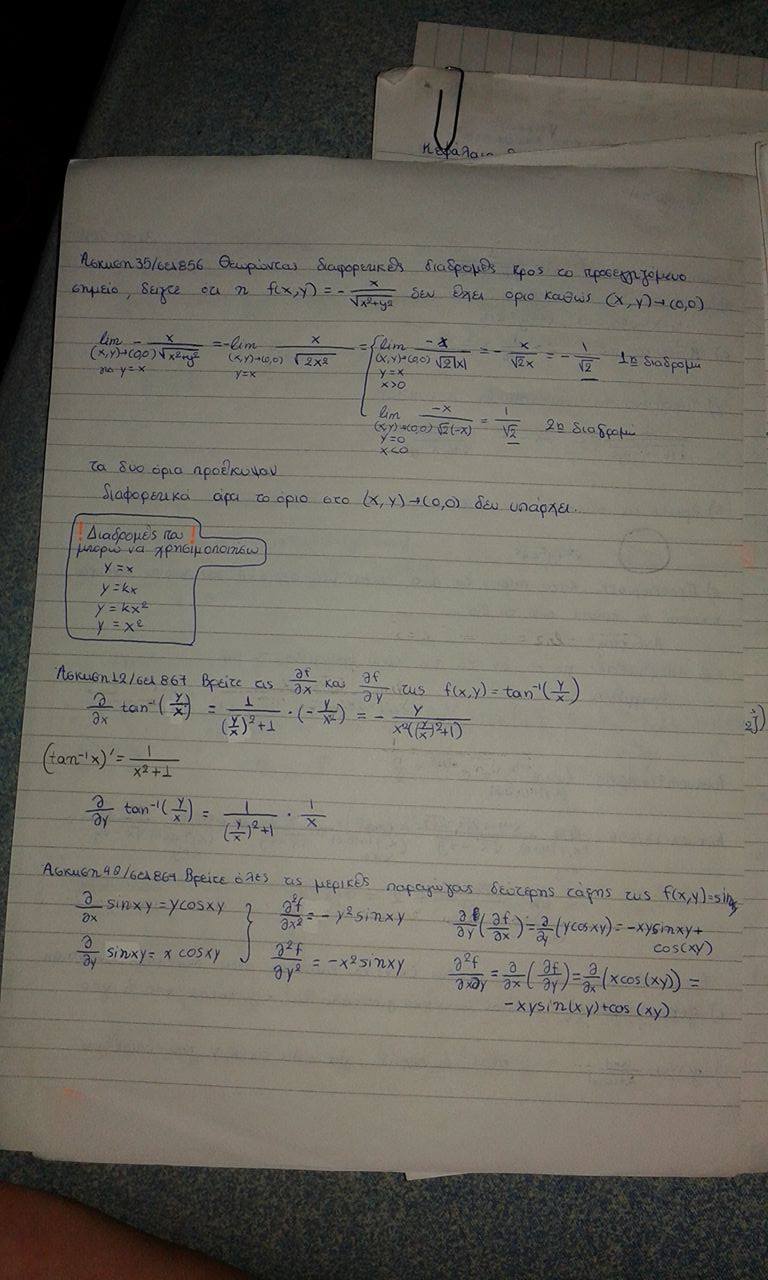 Κεφάλαιο
Άσκηση 35/σελ 856 Θεωρώντας διαφορετικές διαδρομές προς το προσεγγιζόμενο
σημείο, δείξτε ότι η f(x,y) = - x/√(x²+y²) δεν έχει όριο καθώς (x,y)→(0,0)
lim (x,y)→(0,0) για y=x - x/√(x²+y²) = -lim (x,y)→(0,0) y=x x/√(2x²) = { lim (x,y)→(0,0) y=x x>0 -x/(√2|x|) = - x/(√2x) = - 1/√2 1η διαδρομή
lim (x,y)→(0,0) y=0 x<0 -x/(√2(-x)) = 1/√2 2η διαδρομή
τα δυο όρια προέκυψαν
διαφορετικά άρα το όριο στο (x,y)→(0,0) δεν υπάρχει.
! Διαδρομές που !
μπορώ να χρησιμοποιήσω
y = x
y = kx
y = kx²
y = x²
Άσκηση 12/σελ 867 Βρείτε τις ∂f/∂x και ∂f/∂y της f(x,y) = tan⁻¹(y/x)
∂/∂x tan⁻¹(y/x) = 1/((y/x)²+1) · (-y/x²) = - y/(x²((y/x)²+1))
(tan⁻¹x)' = 1/(x²+1)
∂/∂y tan⁻¹(y/x) = 1/((y/x)²+1) · 1/x
Βρείτε όλες τις μερικές παραγώγους δεύτερης τάξης της f(x,y)=sinxy
∂/∂x sinxy = ycosxy } ∂²f/∂x² = -y²sinxy ∂/∂y(∂f/∂x) = ∂/∂y(ycosxy) = -xysinxy+
cos(xy)
∂/∂y sinxy = x cosxy ∂²f/∂y² = -x²sinxy ∂²f/∂x∂y = ∂/∂x(∂f/∂y) = ∂/∂x(xcos(xy)) =
-xysin(xy)+cos(xy)